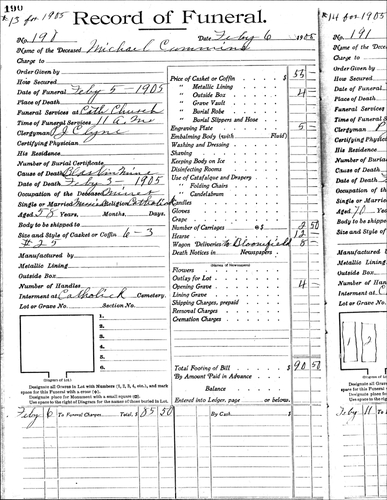 190
#13 for 1905
Record of Funeral.
No. 190 Date Feby 6 1905
Name of the Deceased Michael Cummins
Charge to
Order Given by
How Secured
Date of Funeral Feby 5 - 1905
Place of Death
Funeral Services at Cath Church
Time of Funeral Services 11 A. M.
Clergyman J Clyne
Certifying Physician
His Residence
Number of Burial Certificate
Cause of Death Blast in Mine
Date of Death Feby 3 - 1905
Occupation of the Deceased Miner
Single or Married Religion Catholick
Aged 58 Years, Months, Days.
Body to be shipped to
Size and Style of Casket or Coffin 6-3
# 25
Manufactured by
Metallic Lining
Outside Box
Number of Handles
Interment at Catholick Cemetery.
Lot or Grave No. Section No.
1.
2.
3.
4.
5.
6.
(Diagram of Lot.)
Designate all Graves in Lot with Numbers (1, 2, 3, 4, etc.), and mark space for this Funeral with a cross.
Designate place for Monument with a small square.
Use space to the right of Diagram for the names of those buried in Lot.
Feby 6 To Funeral Charges Total, $ 85 50
Price of Casket or Coffin $ 55
" Metallic Lining
" Outside Box 4
" Grave Vault
" Burial Robe
" Burial Slippers and Hose
Engraving Plate 5
Embalming Body (with Fluid)
Washing and Dressing
Shaving
Keeping Body on Ice
Disinfecting Rooms
Use of Catafalque and Drapery
" Folding Chairs
" Candelabrum
Candles
Gloves
Crape
Number of Carriages @ $ 2 50
Hearse 12
Wagon Deliveries to Bloomfield 8
Death Notices in Newspapers
(Names of Newspapers)
Flowers
Outlay for Lot
Opening Grave 4
Lining Grave
Shipping Charges, prepaid
Personal Charges
Cremation Charges
Total Footing of Bill $ 90 50
By Amount Paid in Advance
Balance
Entered into Ledger, page or below.
By Cash $
#14 for 1905
No. 191
Name of the
Charge to
Order Given
How Secured
Date of Fune
Place of Dea
Funeral Serv
Time of Fune
Clergyman
Certifying P
His Resid
Number of B
Cause of Dea
Date of Dea
Occupation o
Single or Ma
Aged 70 Yea
Body to be sh
Size and Sty
Manufacture
Metallic Lin
Outside Box
Number of H
Interment at
Lot or Grave
1 2
Feby 11